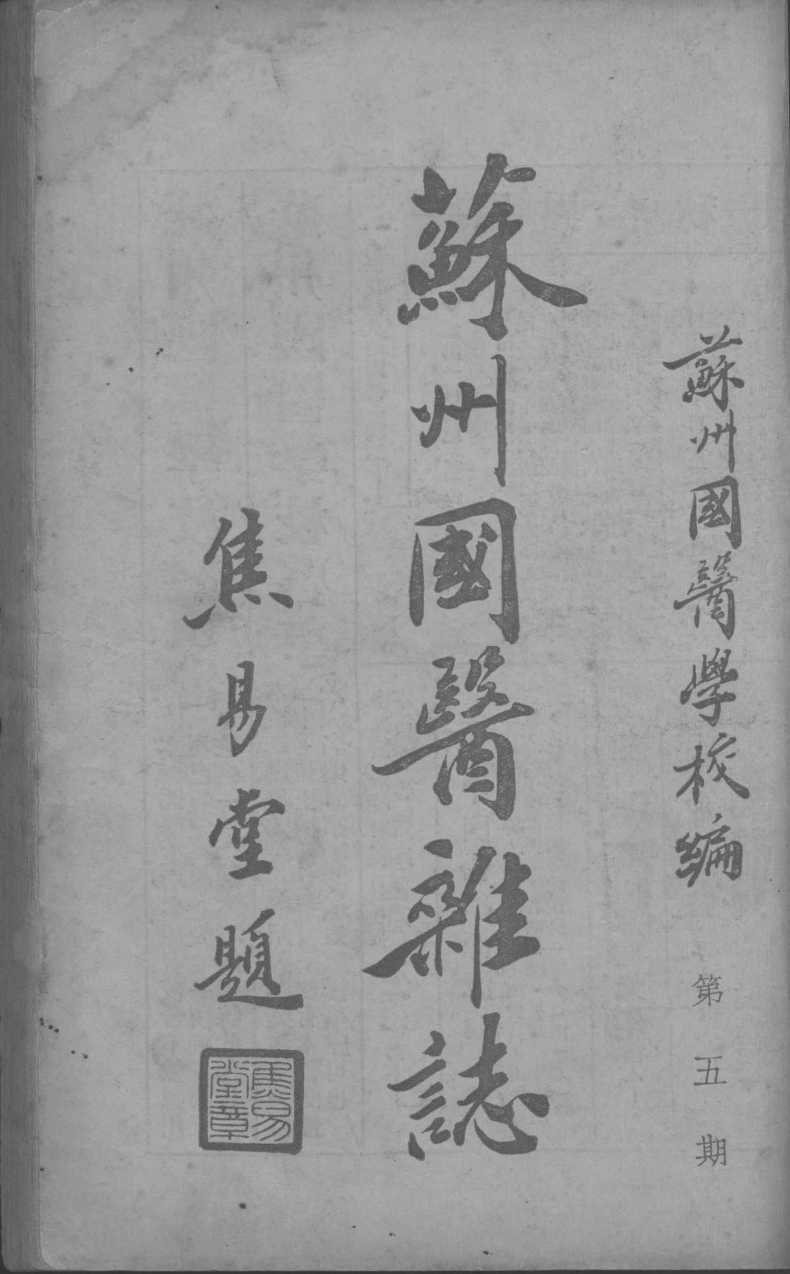 蘇州國醫學校編
第五期
蘇州國醫雜誌
焦易堂題
焦易
堂章